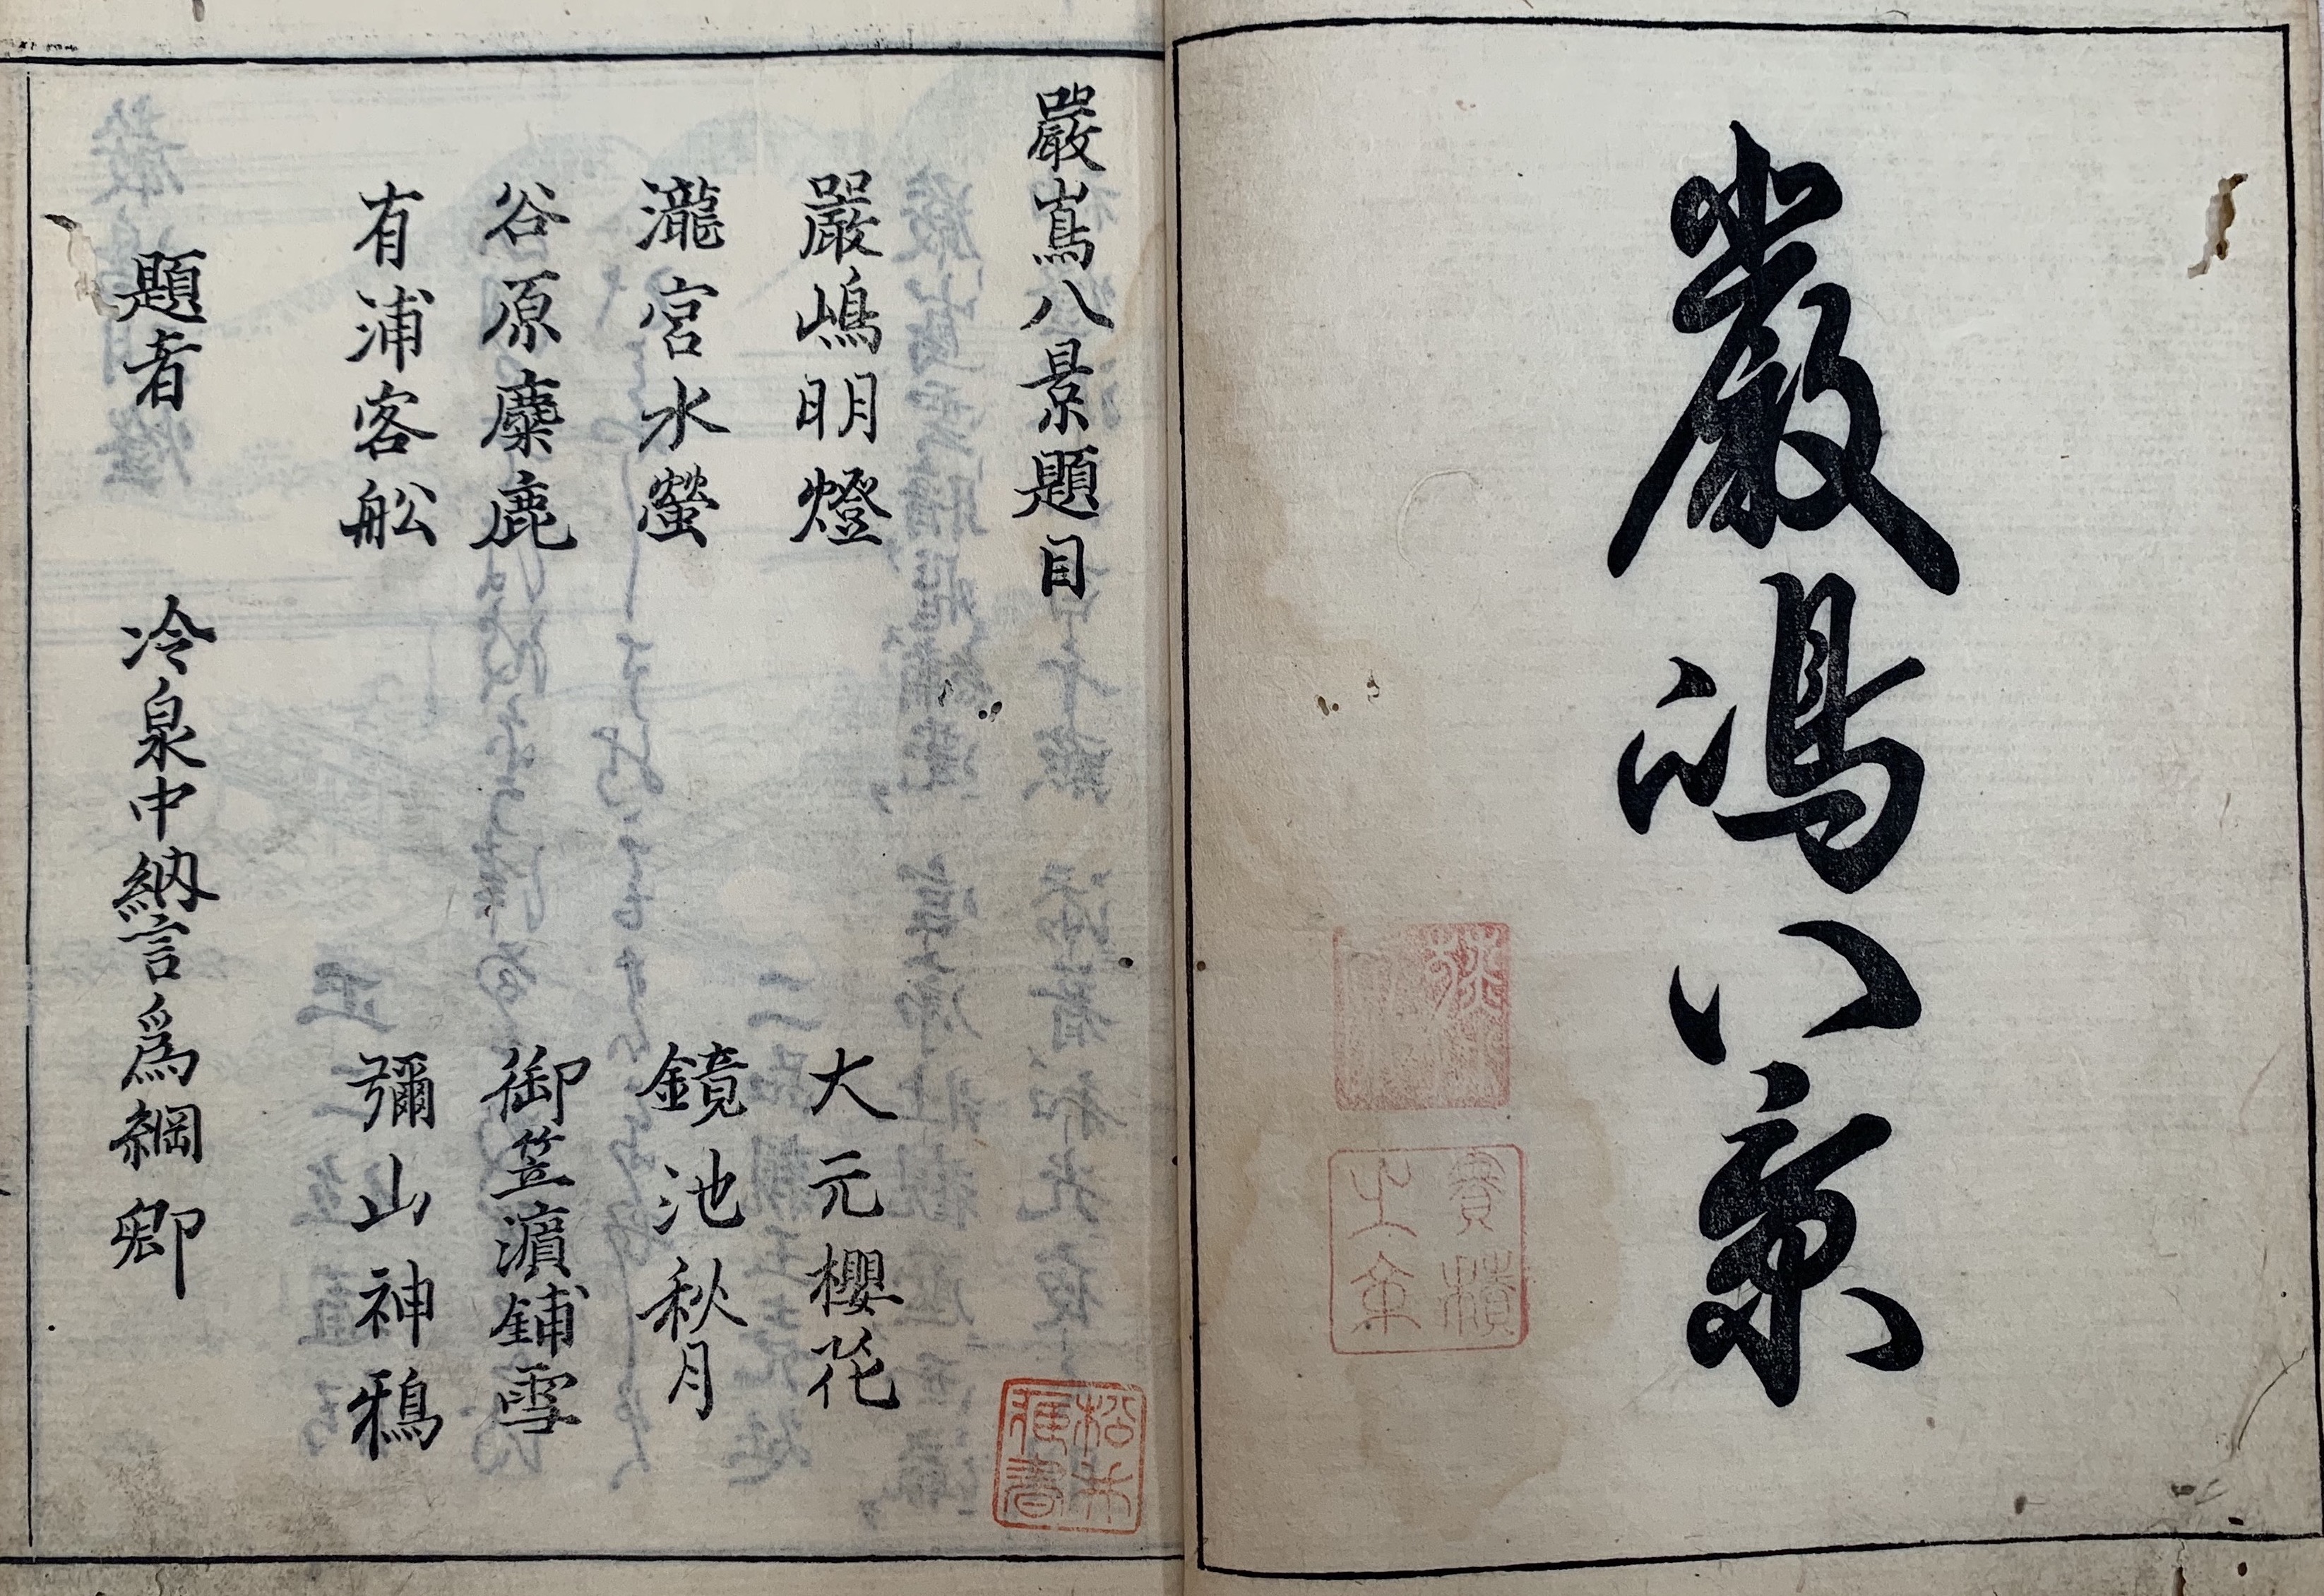 嚴嶋八景
嚴嶌八景題目
嚴嶋明燈　大元櫻花
瀧宮水螢　鏡池秋月
谷原麋鹿　御笠濵鋪雪
有浦客舩　彌山神鴉
題者　冷泉中納言爲綱卿